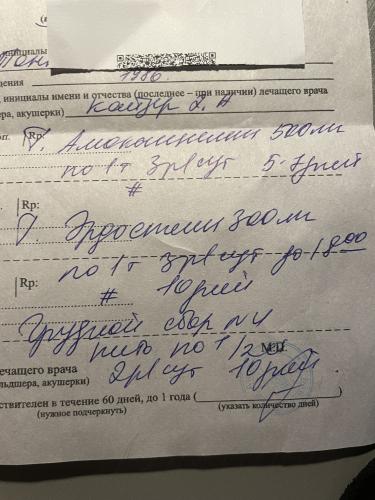 инициалы
1986
, инициалы имени и отчества (последнее – при наличии) лечащего врача
ера, акушерки)
Rp:
Амоксициллин 500мг
по 1т 3 р/сут 5-7 дней
#
Rp:
Эрдостеин 300мг
по 1т 3 р/сут до 18 00
Rp:
# 10 дней
Грудной сбор №4
пить по 1/2
М.П.
лечащего врача
ьдшера, акушерки)
2 р/сут 10 дней
ствителен в течение 60 дней, до 1 года (
)
(нужное подчеркнуть)
(указать количество дней)